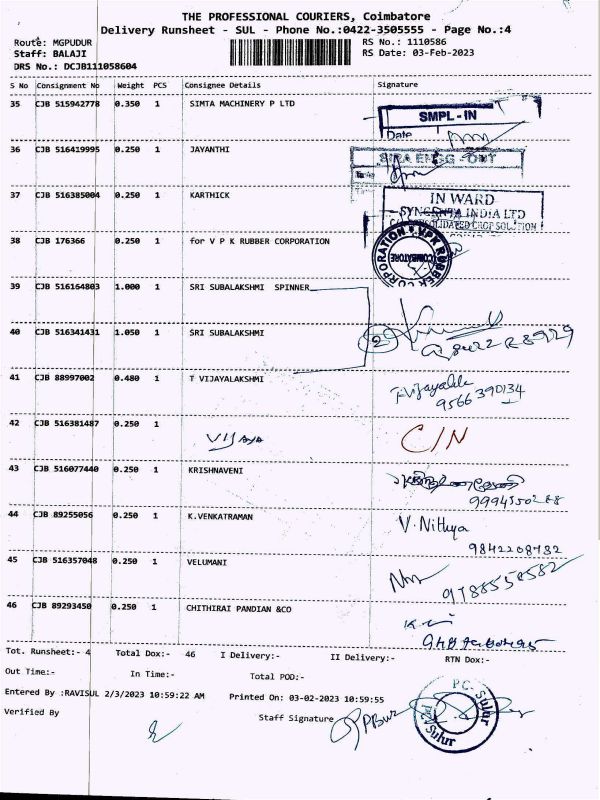 THE PROFESSIONAL COURIERS, Coimbatore
Delivery Runsheet - SUL - Phone No.:0422-3505555 - Page No.:4
Route: MGPUDUR RS No.: 1110586
Staff: BALAJI RS Date: 03-Feb-2023
DRS No.: DCJB111058604
S No Consignment No Weight PCS Consignee Details Signature
35 CJB 515942778 0.350 1 SIMTA MACHINERY P LTD
SMPL-IN
Date
36 CJB 516419995 0.250 1 JAYANTHI
37 CJB 516385004 0.250 1 KARTHICK
IN WARD
SYNGENTA INDIA LTD
38 CJB 176366 0.250 1 for V P K RUBBER CORPORATION
COIMBATORE
39 CJB 516164803 1.000 1 SRI SUBALAKSHMI SPINNER
40 CJB 516341431 1.050 1 SRI SUBALAKSHMI
2
41 CJB 88997002 0.480 1 T VIJAYALAKSHMI
9566390134
42 CJB 516381487 0.250 1 VIJAYA C/N
43 CJB 516077440 0.250 1 KRISHNAVENI
44 CJB 89255056 0.250 1 K.VENKATRAMAN V. Nithya
9842208782
45 CJB 516357048 0.250 1 VELUMANI
9788558582
46 CJB 89293450 0.250 1 CHITHIRAI PANDIAN &CO
Tot. Runsheet:- 4 Total Dox:- 46 I Delivery:- II Delivery:- RTN Dox:-
Out Time:- In Time:- Total POD:-
Entered By :RAVISUL 2/3/2023 10:59:22 AM Printed On: 03-02-2023 10:59:55
Verified By Staff Signature
P.C. Sulur
Sulur